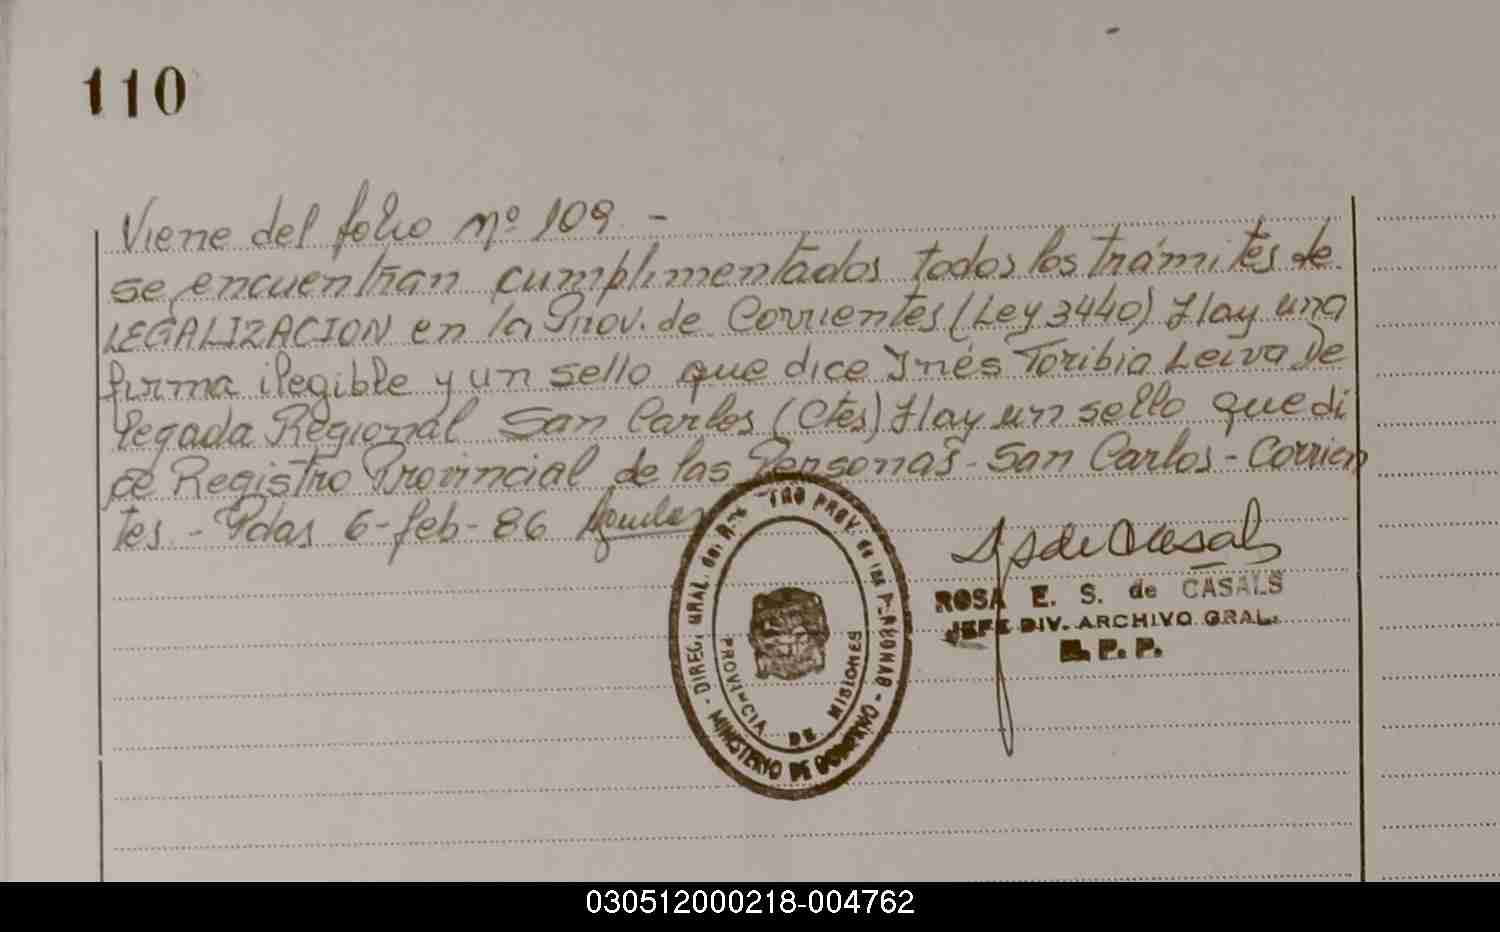 110
Viene del folio nº 109 -
se encuentran cumplimentados todos los trámites de
LEGALIZACION en la Prov. de Corrientes (Ley 3440) Hay una
firma ilegible y un sello que dice Inés Toribia Leiva De
legada Regional San Carlos (Ctes) Hay un sello que di
ce Registro Provincial de las Personas - San Carlos - Corrien
tes. - Pdas 6-feb-86
DIREC. GRAL. del REG TRO PROV. de las PERSONAS - MINISTERIO DE GOBIERNO -
PROVINCIA DE MISIONES
ROSA E. S. de CASALS
JEFE DIV. ARCHIVO GRAL.
R. P. P.
030512000218-004762